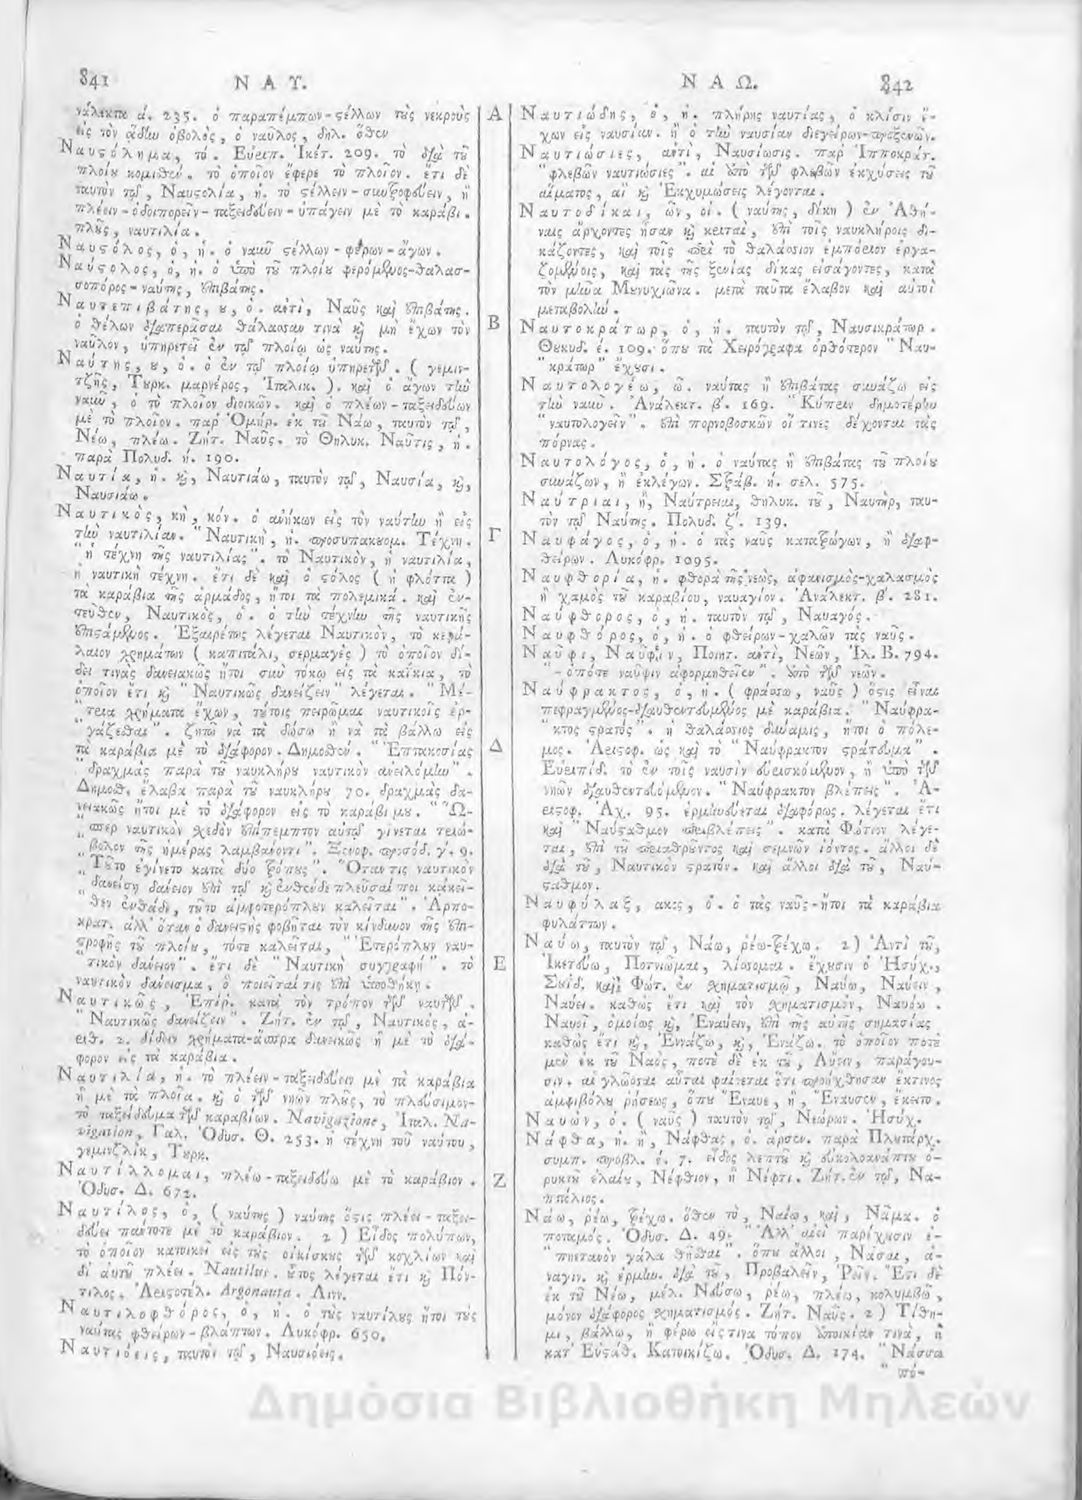 841 ΝΑΥ.
νάλεκτα ά. 235. ὁ παραπέμπων-στέλλων τοὺς νεκροὺς
εἰς τὸν ᾅδην ὀβολός, ὁ ναῦλος, δηλ. ὅθεν
Ναυστόλημα, τό. Εὐριπ. Ἱκέτ. 209. τὸ διὰ τοῦ
πλοίου κομισθέν. τὸ ὁποῖον ἔφερε τὸ πλοῖον. ἔτι δὲ
ταυτὸν τῷ, Ναυστολία, ἡ. τὸ στέλλειν-συντροφεύειν, ἢ
πλέειν-ὁδοιπορεῖν-ταξειδεύειν-ὑπάγειν μὲ τὸ καράβι.
πλοῦς, ναυτιλία.
Ναυστόλος, ὁ, ἡ. ὁ ναῦν στέλλων-φέρων-ἄγων.
Ναύστολος, ὁ, ἡ. ὁ ὑπὸ τοῦ πλοίου φερόμενος-θαλασ-
σοπόρος-ναύτης, ἐπιβάτης.
Ναυτεπιβάτης, ου, ὁ. ἀντὶ, Ναῦς καὶ ἐπιβάτης.
ὁ θέλων διαπερᾶσαι θάλασσαν τινὰ καὶ μὴ ἔχων τὸν
ναῦλον, ὑπηρετεῖ ἐν τῷ πλοίῳ ὡς ναύτης.
Ναύτης, ου, ὁ. ὁ ἐν τῷ πλοίῳ ὑπηρετῶν. (γεμιν-
τζῆς, Τουρκ. μαρνέρος, Ἰταλικ.). καὶ ὁ ἄγων τὴν
ναῦν, ὁ τὸ πλοῖον διοικῶν. καὶ ὁ πλέων-ταξειδεύων
μὲ τὸ πλοῖον. παρ' Ὁμήρ. ἐκ τοῦ Νάω, ταυτὸν τῷ,
Νέω, πλέω. Ζήτ. Ναῦς. τὸ Θηλυκ. Ναῦτις, ἡ.
παρὰ Πολυδ. ή. 190.
Ναυτία, ἡ. καὶ, Ναυτιάω, ταυτὸν τῷ, Ναυσία, καὶ,
Ναυσιάω.
Ναυτικὸς, κὴ, κόν. ὁ ἀνήκων εἰς τὸν ναύτην ἢ εἰς
τὴν ναυτιλίαν. "Ναυτικὴ, ἡ. προσυπακουομ. Τέχνη.
"ἡ τέχνη τῆς ναυτιλίας". τὸ Ναυτικὸν, ἡ ναυτιλία,
ἡ ναυτικὴ τέχνη. ἔτι δὲ καὶ ὁ στόλος (ἡ φλόττα)
τὰ καράβια τῆς ἀρμάδος, ἤτοι τὰ πολεμικά. καὶ ἐν-
τεῦθεν, Ναυτικὸς, ὁ. ὁ τὴν τέχνην τῆς ναυτικῆς
ἐπιστάμενος. Ἐξαιρέτως λέγεται Ναυτικὸν, τὸ κεφά-
λαιον χρημάτων (καπιτάλι, σερμαγὲς) τὸ ὁποῖον δί-
δει τινὰς δανειακῶς ἤτοι σὺν τόκῳ εἰς τὰ καΐκια, τὸ
ὁποῖον ἔτι καὶ "Ναυτικῶς δανείζειν" λέγεται. "Μέ-
"τρια χρήματα ἔχων, τούτοις πειρῶμαι ναυτικοῖς ἐρ-
"γάζεσθαι". ζητῶ νὰ τὰ δώσω ἢ νὰ τὰ βάλλω εἰς
τὰ καράβια μὲ τὸ διάφορον. Δημοσθέν. "Ἑπτακοσίας
"δραχμὰς παρὰ τοῦ ναυκλήρου ναυτικὸν ἀνειλόμην".
Δημοσθ. ἔλαβα παρὰ τοῦ ναυκλήρου 70. δραχμὰς δα-
νειακῶς ἤτοι μὲ τὸ διάφορον εἰς τὸ καράβι μου. "Ὥ-
"σπερ ναυτικὸν σχεδὸν ἐπίπεμπτον αὐτῷ γίνεται τριώ-
"βολον τῆς ἡμέρας λαμβάνοντι". Ξενοφ. προσόδ. γ'. 9.
"Τοῦτο ἐγίνετο κατὰ δύο τρόπους". "Ὅταν τις ναυτικὸν
"δανείσῃ δάνειον ἐπὶ τῷ καὶ ἐνθένδε πλεῦσαί ποι κἀκεῖ-
"θεν ἐνθάδε, τοῦτο ἀμφοτερόπλουν καλεῖται". Ἁρπο-
κρατ. ἀλλ' ὅταν ὁ δανειστὴς φοβῆται τὸν κίνδυνον τῆς ἐπι-
στροφῆς τοῦ πλοίου, τότε καλεῖται, "Ἑτερόπλουν ναυ-
"τικὸν δάνειον". ἔτι δὲ "Ναυτικὴ συγγραφή". τὸ
ναυτικὸν δάνεισμα, ὃ ποιεῖταί τις ἐπὶ ὑποθήκῃ.
Ναυτικῶς, Ἐπίρ. κατὰ τὸν τρόπον τῶν ναυτῶν.
"Ναυτικῶς δανείζειν". Ζήτ. ἐν τῷ, Ναυτικὸς, ἀ-
ριθ. 2. δίδειν χρήματα-ἄσπρα δανεικῶς ἢ μὲ τὸ διά-
φορον εἰς τὰ καράβια.
Ναυτιλία, ἡ. τὸ πλέειν-ταξειδεύειν μὲ τὰ καράβια
ἢ μὲ τὰ πλοῖα. καὶ ὁ τῶν νηῶν πλοῦς, τὸ πλεύσιμον-
τὸ ταξείδευμα τῶν καραβίων. Navigazione, Ἰταλ. Na-
vigation, Γαλ. Ὀδυσ. Θ. 253. ἡ τέχνη τοῦ ναύτου,
γεμιντζλίκ, Τουρκ.
Ναυτίλλομαι, πλέω-ταξειδεύω μὲ τὸ καράβιον.
Ὀδυσ. Δ. 672.
Ναυτίλος, ὁ, (ναύτης) ναύτης ὅστις πλέει-ταξει-
δεύει πάντοτε μὲ τὸ καράβιον. 2) Εἶδος πολύπων,
τὸ ὁποῖον κατοικεῖ εἰς τοὺς οἰκίσκους τῶν κοχλίων καὶ
δι' αὐτοῦ πλέει. Nautilus. οὗτος λέγεται ἔτι καὶ Πόν-
τιλος. Ἀριστοτέλ. Argonauta. Λιν.
Ναυτιλοφθόρος, ὁ, ἡ. ὁ τοὺς ναυτίλους ἤτοι τοὺς
ναύτας φθείρων-βλάπτων. Λυκόφρ. 650.
Ναυτιόεις, ταυτὸν τῷ, Ναυσιόεις.
Α
Β
Γ
Δ
Ε
Ζ
ΝΑΩ. 842
Ναυτιώδης, ὁ, ἡ. πλήρης ναυτίας, ὁ κλίσιν ἔ-
χων εἰς ναυσίαν. ἢ ὁ τὴν ναυσίαν διεγείρων-προξενῶν.
Ναυτιώσιες, ἀντὶ, Ναυσίωσις. παρ' Ἱπποκράτ.
"φλεβῶν ναυτιώσιες". αἱ ὑπὸ τῶν φλεβῶν ἐκχύσεις τοῦ
αἵματος, αἳ καὶ Ἐκχυμώσεις λέγονται.
Ναυτοδίκαι, ῶν, οἱ. (ναύτης, δίκη) ἐν Ἀθή-
ναις ἄρχοντες ἦσαν καὶ κριταὶ, ἐπὶ τοῖς ναυκλήροις δι-
κάζοντες, καὶ τοῖς περὶ τὸ θαλάσσιον ἐμπόριον ἐργα-
ζομένοις, καὶ τὰς τῆς ξενίας δίκας εἰσάγοντες, κατὰ
τὸν μῆνα Μουνυχιῶνα. μετὰ ταῦτα ἔλαβον καὶ αὐτοὶ
μεταβολήν.
Ναυτοκράτωρ, ὁ, ἡ. ταυτὸν τῷ, Ναυσικράτωρ.
Θουκυδ. έ. 109. ὅπου τὰ Χειρόγραφα ὀρθότερον "Ναυ-
"κράτωρ" ἔχουσι.
Ναυτολογέω, ῶ. ναύτας ἢ ἐπιβάτας συνάζω εἰς
τὴν ναῦν. Ἀνάλεκτ. β'. 169. "Κύπριν δημοτέρην
"ναυτολογεῖν". ἐπὶ πορνοβοσκῶν οἵ τινες δέχονται τὰς
πόρνας.
Ναυτολόγος, ὁ, ἡ. ὁ ναύτας ἢ ἐπιβάτας τοῦ πλοίου
συνάζων, ἢ ἐκλέγων. Στράβ. ή. σελ. 575.
Ναύτριαι, ἢ, Ναύτρειαι, θηλυκ. τοῦ, Ναυτὴρ, ταυ-
τὸν τῷ Ναύτης. Πολυδ. ζ'. 139.
Ναυφάγος, ὁ, ἡ. ὁ τὰς ναῦς κατατρώγων, ἢ διαφ-
θείρων. Λυκόφρ. 1095.
Ναυφθορία, ἡ. φθορὰ τῆς νεὼς, ἀφανισμὸς-χαλασμὸς
ἢ χαμὸς τοῦ καραβίου, ναυαγίον. Ἀνάλεκτ. β'. 281.
Ναύφθορος, ὁ, ἡ. ταυτὸν τῷ, Ναυαγός.
Ναυφθόρος, ὁ, ἡ. ὁ φθείρων-χαλῶν τὰς ναῦς.
Ναῦφι, Ναῦφιν, Ποιητ. ἀντὶ, Νεῶν, Ἰλ. Β. 794.
"-ὁπότε ναῦφιν ἀφορμηθεῖεν". ὑπὸ τῶν νεῶν.
Ναύφρακτος, ὁ, ἡ. (φράσσω, ναῦς) ὅστις εἶναι
πεφραγμένος-διαυθεντευμένος μὲ καράβια. "Ναύφρα-
"κτος στρατός". ἡ θαλάσσιος δύναμις, ἤτοι ὁ πόλε-
μος. Ἀριστοφ. ὡς καὶ τὸ "Ναύφρακτον στράτευμα".
Εὐριπίδ. τὸ ἐν τοῖς ναυσὶν εὑρισκόμενον, ἢ ὑπὸ τῶν
νηῶν διαυθεντευόμενον. "Ναύφρακτον βλέπεις". Ἀ-
ριστοφ. Ἀχ. 95. ἑρμηνεύεται διαφόρως. λέγεται ἔτι
καὶ "Ναύσταθμον περιβλέπεις". κατὰ Φώτιον λέγε-
ται, ἐπὶ τοῦ περιαθροῦντος καὶ σεμνῶν ἰόντος. ἄλλοι δὲ
διὰ τοῦ, Ναυτικὸν στρατόν. καὶ ἄλλοι διὰ τοῦ, Ναύ-
σταθμον.
Ναυφύλαξ, ακος, ὁ. ὁ τὰς ναῦς-ἤτοι τὰ καράβια
φυλάττων.
Ναύω, ταυτὸν τῷ, Νάω, ῥέω-τρέχω. 2) Ἀντὶ τοῦ,
Ἱκετεύω, Ποτνιῶμαι, λίσσομαι. ἔχουσιν ὁ Ἡσύχ.,
Σουΐδ. καὶ Φώτ. ἐν χρηματισμῷ, Ναύω, Ναύειν,
Ναύει. καθὼς ἔτι καὶ τὸν χρηματισμὸν, Ναυόω.
Ναυοῖ, ὁμοίως καὶ, Ἐναύειν, ἐπὶ τῆς αὐτῆς σημασίας
καθὼς ἔτι καὶ, Ἐννάζω, καὶ, Ἐνάζω. τὸ ὁποῖον ποτὲ
μὲν ἐκ τοῦ Ναὸς, ποτὲ δὲ ἐκ τοῦ, Αὔειν, παράγου-
σιν. αἱ γλῶσσαι αὗται φαίνεται ὅτι προήχθησαν ἔκ τινος
ἀμφιβόλου ῥήσεως, ὅπου Ἔναυε, ἢ, Ἔναυσεν, ἔκειτο.
Ναυῶν, ὁ. (ναῦς) ταυτὸν τῷ, Νεώρων. Ἡσύχ.
Νάφθα, ἡ. ἢ, Νάφθας, ὁ. ἀρσεν. παρὰ Πλουτάρχ.
συμπ. προβλ. έ. 7. εἶδος λεπτοῦ καὶ εὐκολοανάπτου ὀ-
ρυκτοῦ ἐλαίου, Νέφθιον, ἢ Νέφτι. Ζήτ. ἐν τῷ, Να-
Νάω, ῥέω, τρέχω. ὅθεν τὸ, Ναίω, καὶ, Νᾶμα. ὁ
ποταμός. Ὀδυσ. Δ. 49. "Ἀλλ' αἰεὶ παρίχουσιν ἐ-
"πηετανὸν γάλα θῆσθαι". ὅπου ἄλλοι, Νᾶσαι, ἀ-
ναγιν. καὶ ἑρμην. διὰ τοῦ, Προβαλεῖν, Ῥεῖν. Ἔτι δὲ
ἐκ τοῦ Νέω, μέλ. Νεύσω, ῥέω, πλέω, κολυμβῶ,
μόνον διάφορος χρηματισμός. Ζήτ. Ναῦς. 2) Τίθη-
μι, βάλλω, ἢ φέρω εἴς τινα τόπον ὑποικίαν τινὰ, ἢ
κατ' Εὐστάθ. Κατοικίζω. Ὀδυσ. Δ. 174. "Νάσσα
"πό-
Δημόσια Βιβλιοθήκη Μηλεών